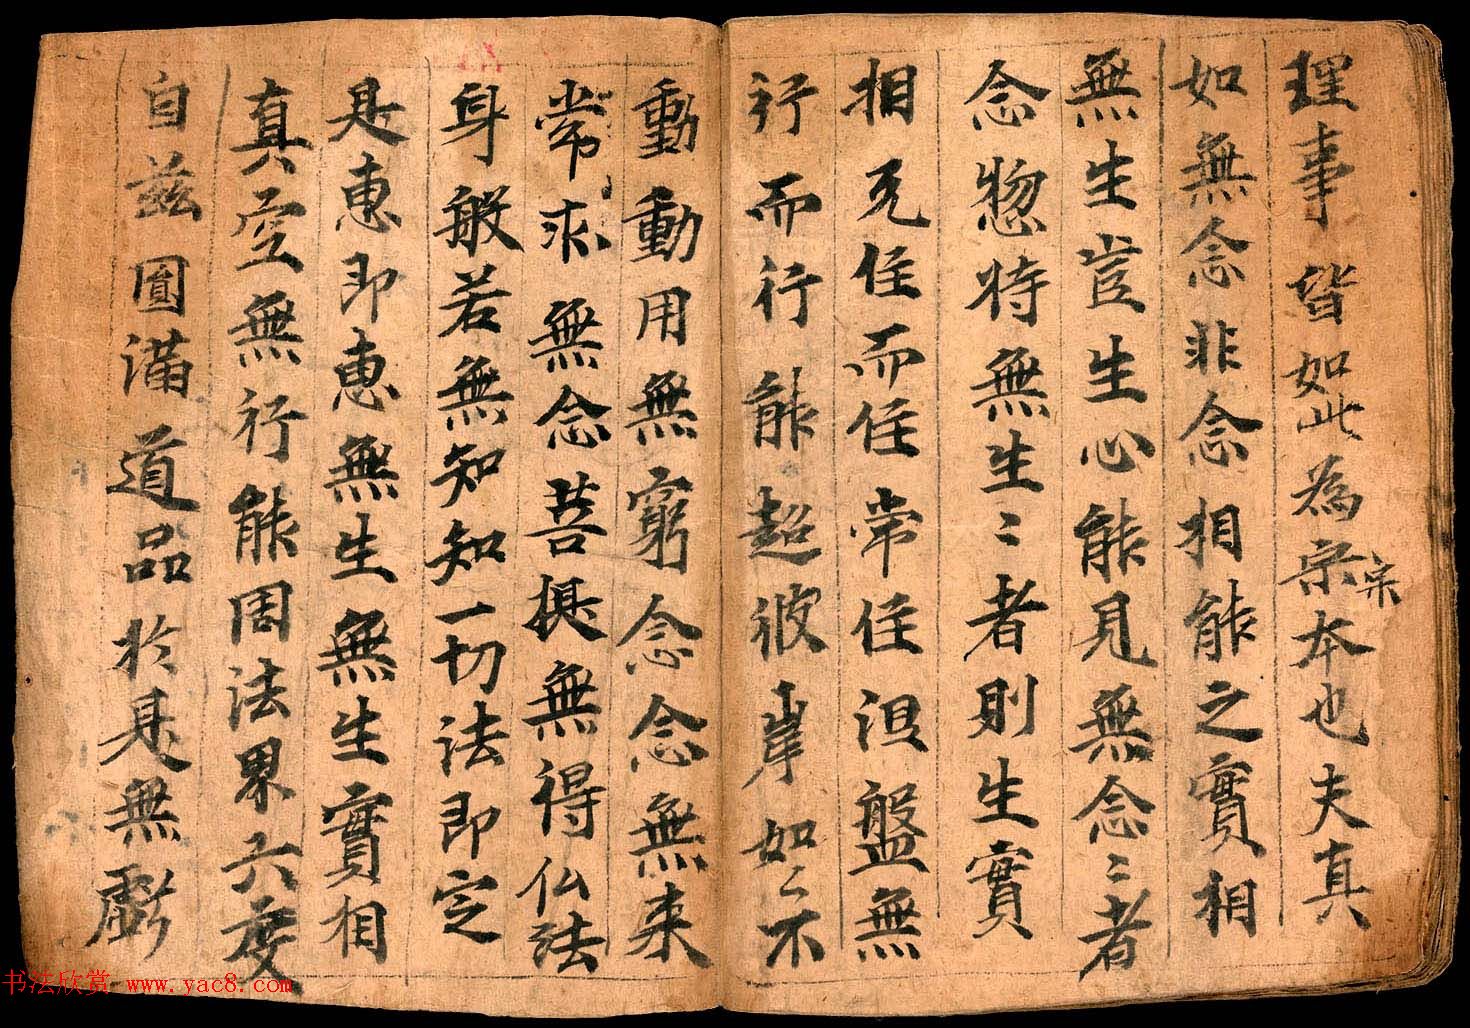 理事皆如此為宗本也夫真
宗
如無念非念相能之實相
無生豈生生心能見無念〻者
念惣持無生〻者則生實
相无住而住常住涅盤無
行而行能超彼岸如〻不
動動用無窮念念無来
常求無念菩提無得仏法
身般若無知知一切法即定
是惠即惠無生無生實相
真空無行能周法界六度
自兹圓滿道品於是無虧
书法欣赏 www.yac8.com